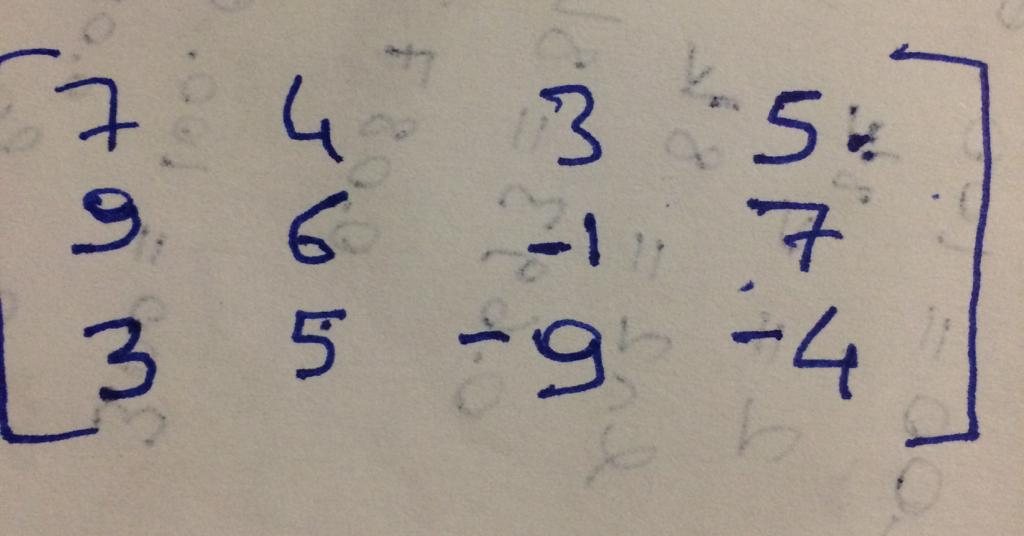 7 4 3 5
9 6 -1 7
3 5 -9 -4